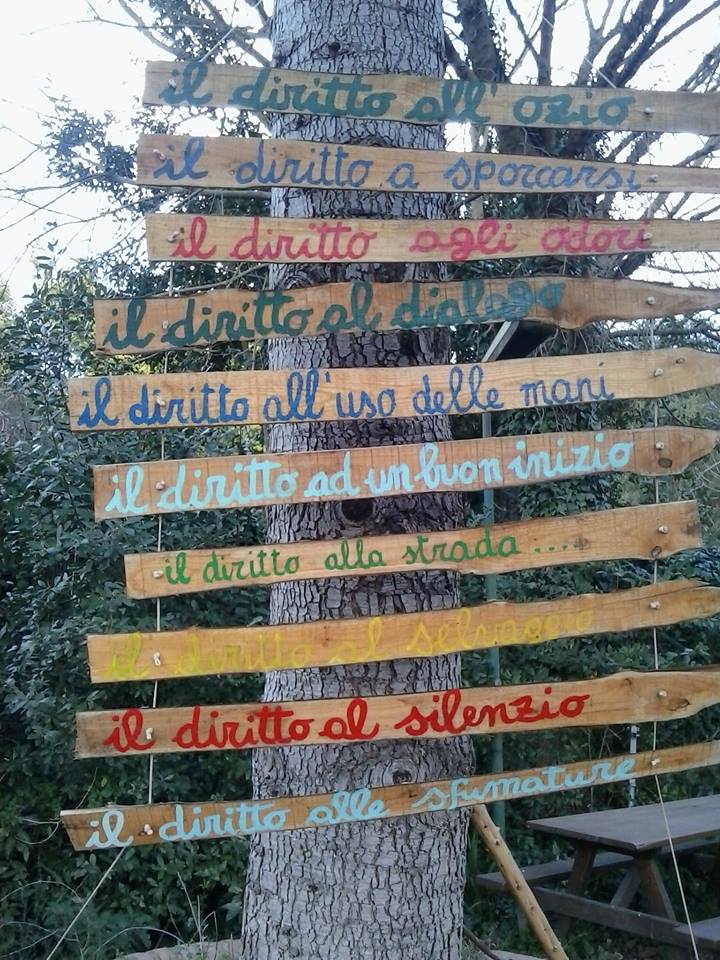 il diritto all' ozio
il diritto a sporcarsi
il diritto agli odori
il diritto al dialogo
il diritto all'uso delle mani
il diritto ad un buon inizio
il diritto alla strada ....
il diritto al selvaggio
il diritto al silenzio
il diritto alle sfumature